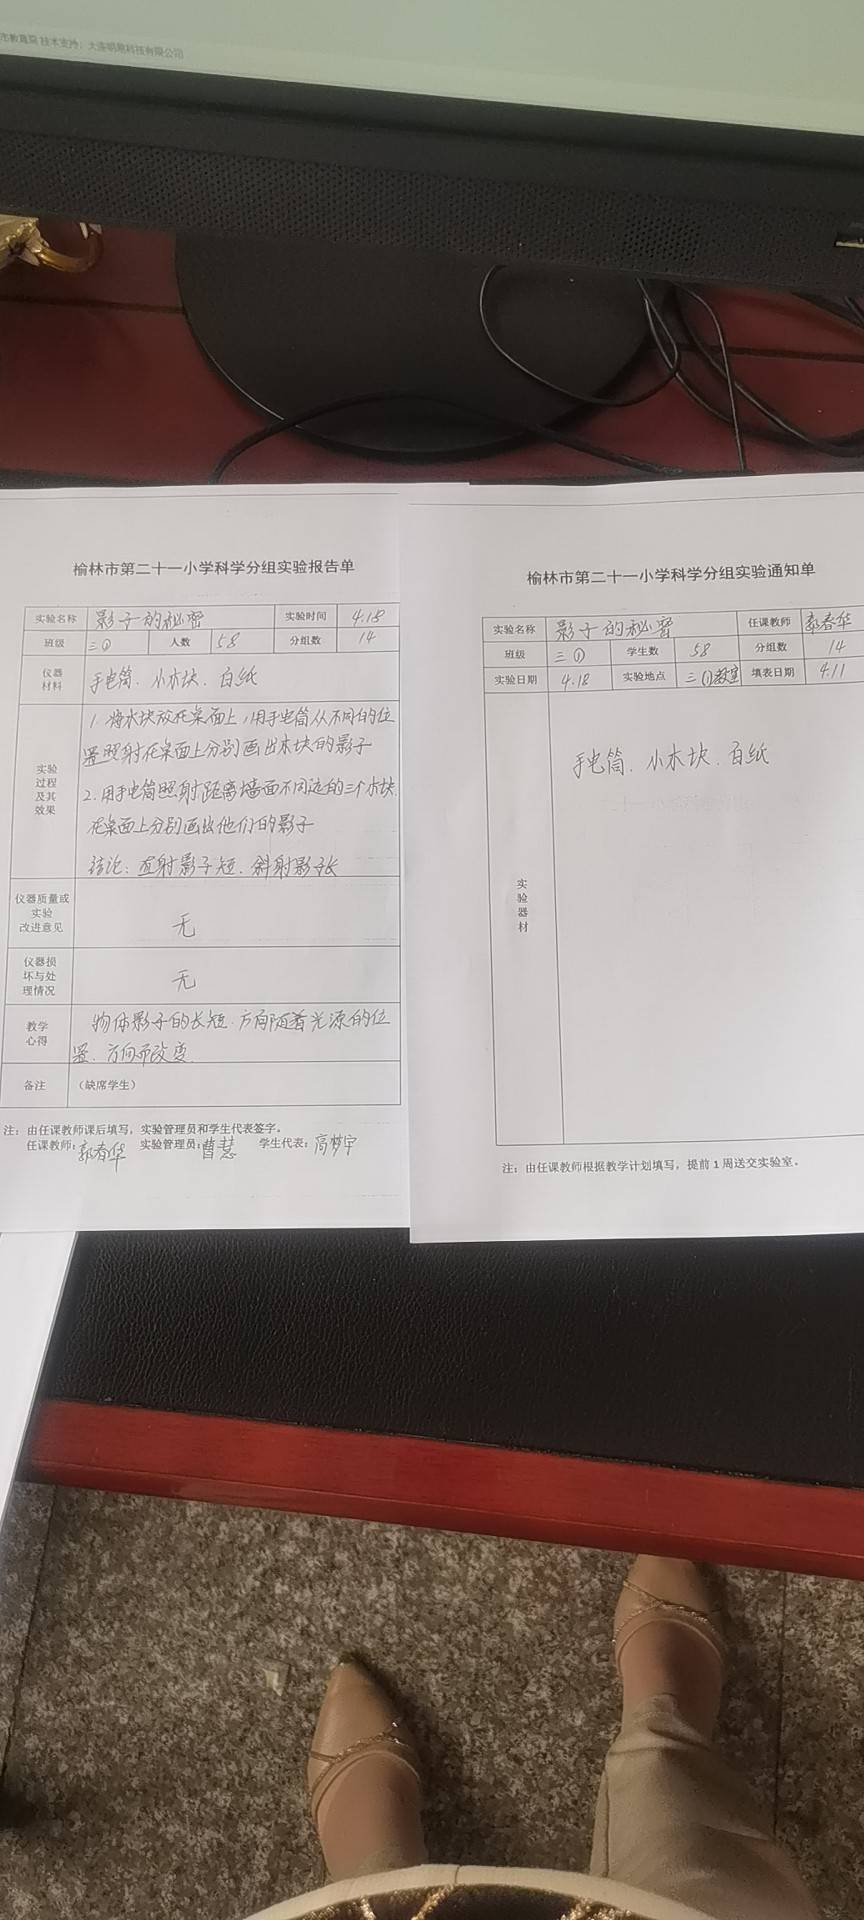 市教育局 技术支持：大连明易科技有限公司
榆林市第二十一小学科学分组实验报告单
实验名称 影子的秘密 实验时间 4.18
班级 三① 人数 58 分组数 14
仪器
材料
手电筒、小木块、白纸
实验
过程
及其
效果
1. 将木块放在桌面上，用手电筒从不同的位
置照射在桌面上分别画出木块的影子
2. 用手电筒照射距离墙面不同远的三个木块
在桌面上分别画出他们的影子
结论：直射影子短、斜射影子长
仪器质量或
实验
改进意见
无
仪器损
坏与处
理情况
无
教学
心得
物体影子的长短、方向随着光源的位
置、方向而改变
备注 （缺席学生）
注：由任课教师课后填写，实验管理员和学生代表签字。
任课教师：郭春华 实验管理员：曹慧 学生代表：高梦宇
榆林市第二十一小学科学分组实验通知单
实验名称 影子的秘密 任课教师 郭春华
班级 三① 学生数 58 分组数 14
实验日期 4.18 实验地点 三①教室 填表日期 4.11
实
验
器
材
手电筒、小木块、白纸
注：由任课教师根据教学计划填写，提前1周送交实验室。